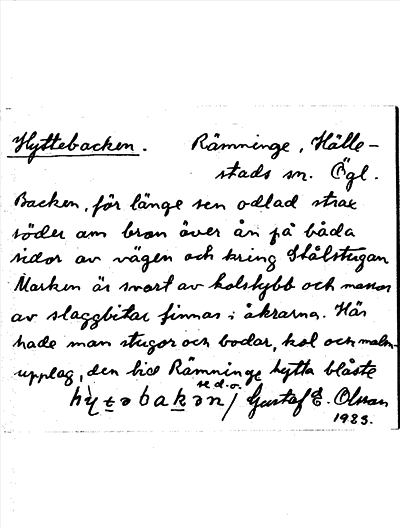 Hyttebacken. Rämninge, Hälle-
stads sn. Ögl.
Backen, för länge sen odlad strax
söder om bron över ån på båda
sidor av vägen och kring Stålstugan
Marken är svart av kolstybb och massor
av slaggbitar finnas i åkrarna. Här
hade man stugor och bodar, kol och malm-
upplag, den tid Rämninge hytta blåste
se d.o.
hỳtəbakən / Gustaf E. Olsson
1923.